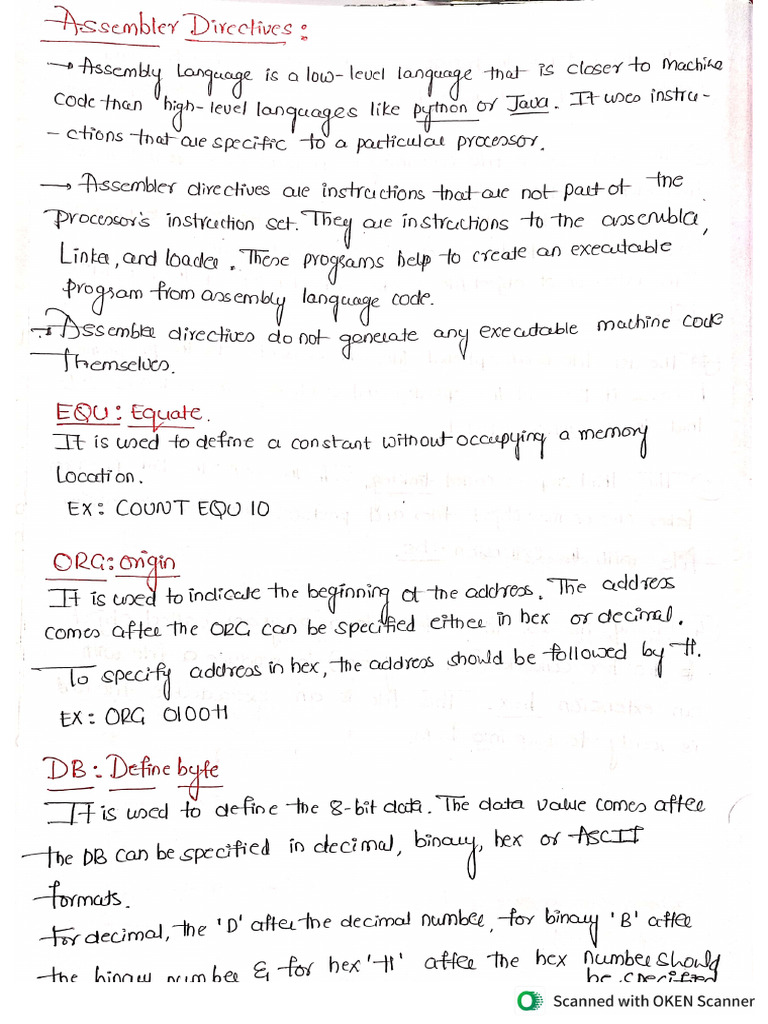 Assembler Directives:
→ Assembly Language is a low-level language that is closer to Machine
code than high-level languages like python or Java. It uses instru-
-ctions that are specific to a particular processor.
→ Assembler directives are instructions that are not part of the
processor's instruction set. They are instructions to the assembler,
Linker, and loader. These programs help to create an executable
program from assembly language code.
→ Assembler directives do not generate any executable machine code
themselves.
EQU: Equate.
It is used to define a constant without occupying a memory
Location.
EX: COUNT EQU 10
ORG: Origin
It is used to indicate the beginning of the address. The address
comes after the ORG can be specified either in hex or decimal.
To specify address in hex, the address should be followed by H.
EX: ORG 0100H
DB: Define byte
It is used to define the 8-bit data. The data value comes after
the DB can be specified in decimal, binary, hex or ASCII
formats.
for decimal, the 'D' after the decimal number, for binary 'B' after
the binary number & for hex 'H' after the hex number should
be specified
Scanned with OKEN Scanner